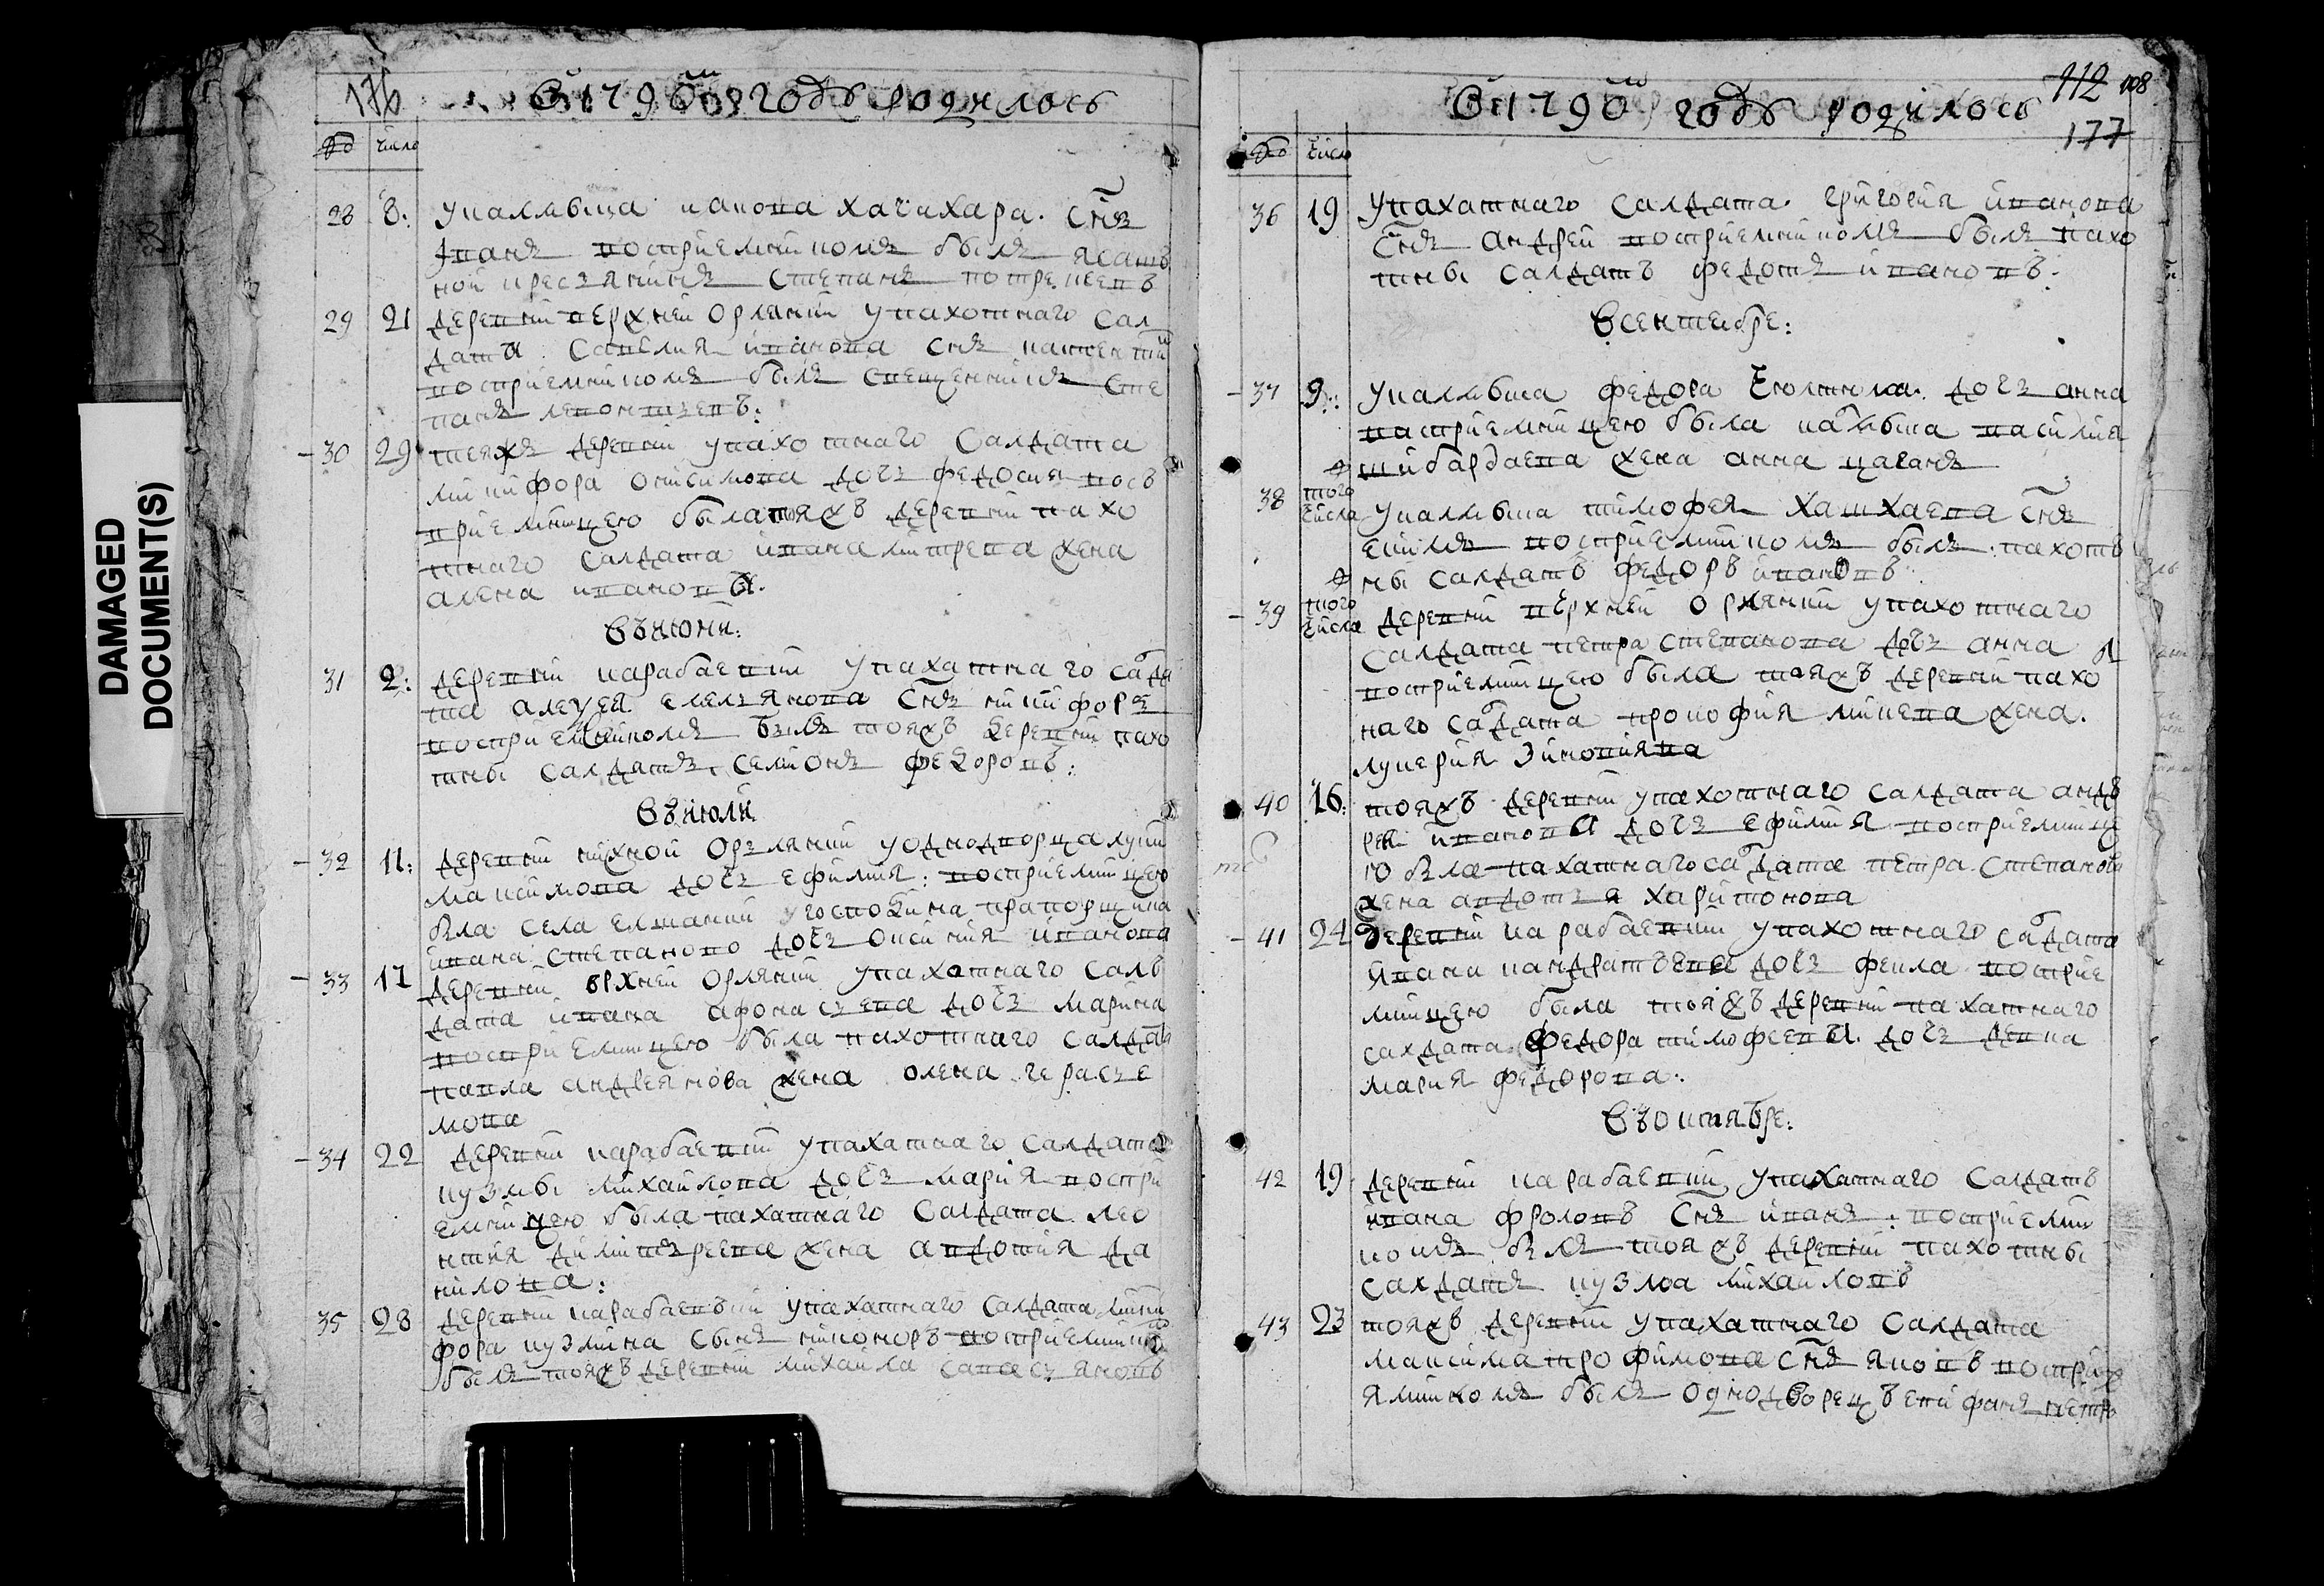 176
В 1790м годѣ родилось
число
28 8. У калмыка иакова хачихара. Снъ
Іванъ восприемникомъ былъ ясашъ
ной кресъянинъ Степанъ
29 21 Деревни верхней Орлянки у пахотнаго сал
дата Савелия иванова Снъ
восприемникомъ былъ священникъ Сте
панъ леонтьевъ:
30 29 тояжъ деревни у пахотнаго Салдата
никифора онисимова дочь федосия вось
приемницею была тояжъ деревни пахо
тнаго салдата ивана митрева жена
алена иванова.
Въ июни:
31 2: деревни карабаевки у пахатнаго салда
та алеѯея емельянова Снъ никифоръ
восприемникомъ былъ тояжъ деревни пахо
тны салдатъ семионъ федоровъ:
Въ июли
32 11: деревни нижной Орьлянки у однодворца луки
максимова дочь ефимия: восприемницею
была села елшанки у господина прапорщика
ивана Степаново дочь оксиния иванова
33 17 деревни врхней Орлянки у пахатнаго салъ
дата ивана афонасьева дочь марина
восприемницею была пахотнаго салда
павла андреянова жена олена герасе
мова
34 22 деревни карабаевки у пахатнаго салдата
кузмы михайлова дочь мария воспри
емницею была пахатнаго Салдата лео
нтия димитьреева жена авдотия да
нилова:
35 28 деревни карабаевъки у пахатнаго салдата ники
фора кузмина сынъ никоноръ восприемником
былъ тояжъ деревни михаила савасьяновъ
В 1790м годѣ родилось 112 108
177
число
36 19 У пахатнаго Салдата. григория иванова
Снъ андреи восприемникомъ былъ пахо
тны салдатъ федотъ ивановъ:
В сентебре:
37 9: У калмыка федора дочь анна
васприемницею была калмыка василия
шибардаева жена анна цаганъ
38 того числа У калмыка тимофея хашхаева Снъ
емилъ восприемникомъ былъ: пахоть
ны салдатъ федоръ ивановъ
39 того числа деревни верхней орлянки у пахотнаго
салдата петра степанова дочь анна
восприемницею была тояжъ деревни пахо
наго салдата прокофия минева жена.
лукерия зиновиява
40 16: тояжъ деревни у пахотнаго салдата андъ
рея иванова дочь ефимия восприемнице
ю была пахатнаго салдата петра степанова
жена авдотья харитонова
41 24 деревни карабаевки у пахотнаго салдата
ивана кандратьева дочь фекла восприе
мницею была тояжъ деревни пахатнаго
салдата федора тимофеевы. дочь девка
мария федорова:.
Въ октябре:
42 19 деревни карабаевки, у пахатнаго Салдатъ
ивана фроловъ Снъ иванъ: восприемни
комъ былъ тояжъ деревни пахотны
салдатъ кузмa михайловъ
43 23 тояжъ деревни у пахатнаго Салдата
максима трофимова Снъ яковъ воспри
ямникомъ былъ однодворецъ епифанъ петро
DAMAGED
DOCUMENT(S)